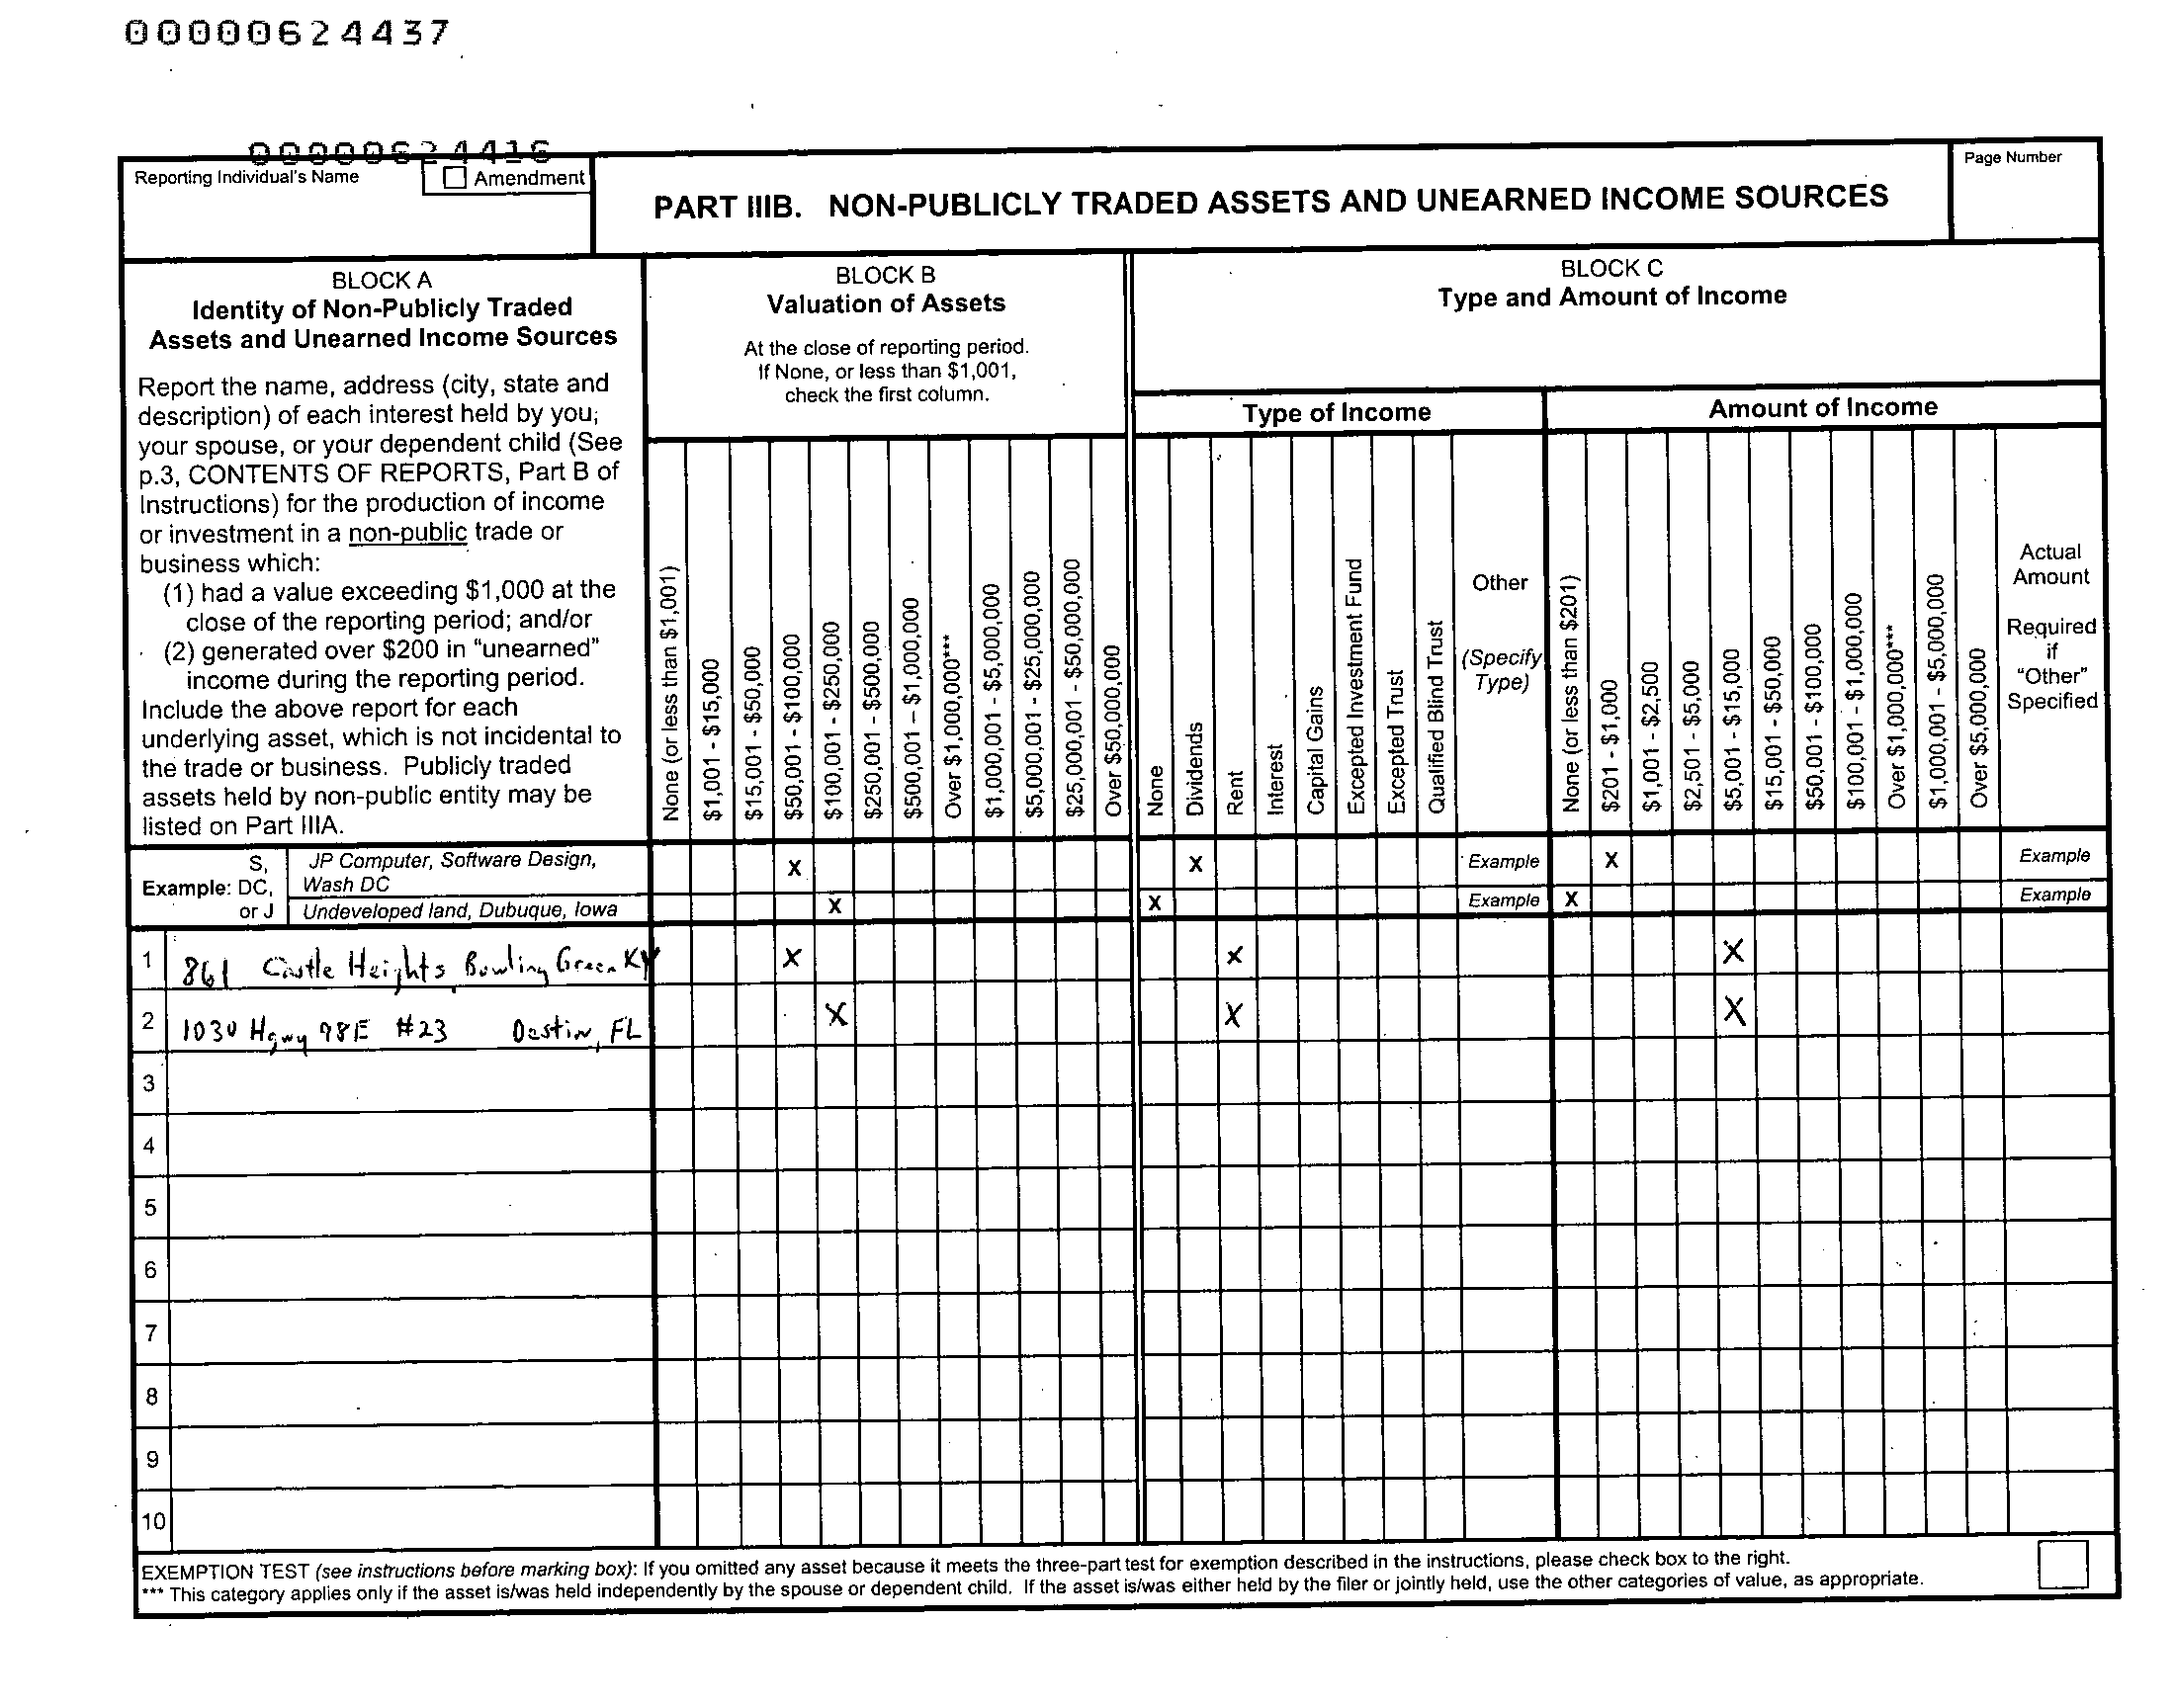 00000624437
00000624416
Reporting Individual's Name
Amendment
PART IIIB. NON-PUBLICLY TRADED ASSETS AND UNEARNED INCOME SOURCES
Page Number
BLOCK A
Identity of Non-Publicly Traded
Assets and Unearned Income Sources
Report the name, address (city, state and
description) of each interest held by you,
your spouse, or your dependent child (See
p.3, CONTENTS OF REPORTS, Part B of
Instructions) for the production of income
or investment in a non-public trade or
business which:
(1) had a value exceeding $1,000 at the
close of the reporting period; and/or
(2) generated over $200 in "unearned"
income during the reporting period.
Include the above report for each
underlying asset, which is not incidental to
the trade or business. Publicly traded
assets held by non-public entity may be
listed on Part IIIA.
BLOCK B
Valuation of Assets
At the close of reporting period.
If None, or less than $1,001,
check the first column.
None (or less than $1,001)
$1,001 - $15,000
$15,001 - $50,000
$50,001 - $100,000
$100,001 - $250,000
$250,001 - $500,000
$500,001 – $1,000,000
Over $1,000,000***
$1,000,001 - $5,000,000
$5,000,001 - $25,000,000
$25,000,001 - $50,000,000
Over $50,000,000
BLOCK C
Type and Amount of Income
Type of Income
None
Dividends
Rent
Interest
Capital Gains
Excepted Investment Fund
Excepted Trust
Qualified Blind Trust
Other
(Specify
Type)
Amount of Income
None (or less than $201)
$201 - $1,000
$1,001 - $2,500
$2,501 - $5,000
$5,001 - $15,000
$15,001 - $50,000
$50,001 - $100,000
$100,001 - $1,000,000
Over $1,000,000***
$1,000,001 - $5,000,000
Over $5,000,000
Actual
Amount
Required
if
"Other"
Specified
Example:
S,
DC,
or J
JP Computer, Software Design,
Wash DC
X X Example X Example
Undeveloped land, Dubuque, Iowa X X Example X Example
1 861 Castle Heights, Bowling Green KY X X X
2 1030 Hgwy 98E #23 Destin, FL X X X
3
4
5
6
7
8
9
10
EXEMPTION TEST (see instructions before marking box): If you omitted any asset because it meets the three-part test for exemption described in the instructions, please check box to the right.
*** This category applies only if the asset is/was held independently by the spouse or dependent child. If the asset is/was either held by the filer or jointly held, use the other categories of value, as appropriate.